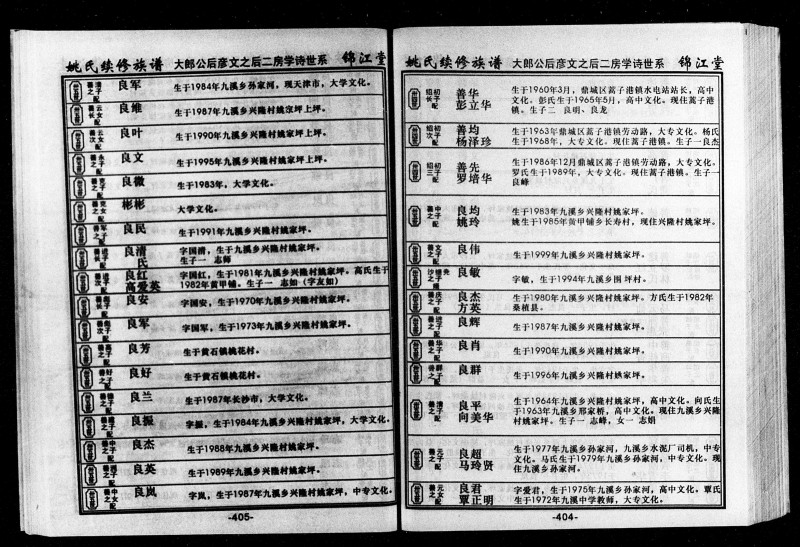 姚氏续修族谱 大郎公后彦文之后二房学诗世系 锦江堂
良军 生于1984年九溪乡孙家河，现天津市，大学文化。
良维 生于1987年九溪乡兴隆村姚家坪上坪。
良叶 生于1990年九溪乡兴隆村姚家坪上坪。
良文 生于1995年九溪乡兴隆村姚家坪上坪。
良徽 生于1983年，大学文化。
彬彬 大学文化。
良民 生于1991九溪乡兴隆村姚家坪。
良清 字国清，生于九溪乡兴隆村姚家坪。
氏 生子一 志师
良红 字国红，生于1981年九溪乡兴隆村姚家坪。高氏生于
高爱英 1982年黄甲铺。生子一 志如（字友如）
良安 字国安，生于1970年九溪乡兴隆村姚家坪。
良军 字国军，生于1973年九溪乡兴隆村姚家坪。
良芳 生于黄石镇桃花村。
良好 生于黄石镇桃花村。
良兰 生于1987年长沙市，大学文化。
良振 字振，生于1984年九溪乡兴隆村姚家坪，大学文化。
良杰 生于1988年九溪乡兴隆村姚家坪。
良英 生于1989年九溪乡兴隆村姚家坪。
良岚 字岚，生于1987年九溪乡兴隆村姚家坪，中专文化。
-405-
姚氏续修族谱 大郎公后彦文之后二房学诗世系 锦江堂
绍初长子配 善华 彭立华 生于1960年3月，鼎城区蒿子港镇水电站站长，高中
文化。彭氏生于1965年5月，高中文化。现住蒿子港
镇。生子二 良明、良龙
绍初次子配 善均 杨泽珍 生于1963年鼎城区蒿子港镇劳动路，大专文化。杨氏
生于1968年，大专文化。现住蒿子港镇。生子一良杰
绍初三子配 善先 罗培华 生于1986年12月鼎城区蒿子港镇劳动路，大专文化。
罗氏生于1989年，大专文化。现住蒿子港镇。生子一
良峰
善中之子配 良均 姚玲 生于1983年九溪乡兴隆村姚家坪。
姚生于1985年黄甲铺乡长寿村，现住兴隆村姚家坪。
善文之子配 良伟 生于1999年九溪乡兴隆村姚家坪。
良敏 字敏，生于1994年九溪乡围坪村。
良杰 方英 生于1980年九溪乡兴隆村姚家坪。方氏生于1982年
桑植县。
善进之子配 良辉 生于1987年九溪乡兴隆村姚家坪。
善华之子配 良肖 生于1990年九溪乡兴隆村姚家坪。
善群之子配 良群 生于1996年九溪乡兴隆村姚家坪。
善清之子配 良平 向美华 生于1964年九溪乡兴隆村姚家坪，高中文化。向氏生
于1963年九溪乡邢家桥，高中文化。现住九溪乡兴隆
村姚家坪。生子一 志峰，女一 志娟
善元之子配 良超 马玲贤 生于1977年九溪乡孙家河，九溪乡水泥厂司机，中专
文化。马氏生于1979年九溪乡孙家河，中专文化。现
住九溪乡孙家河。
善元之女配 良君 覃正明 字爱君，生于1975年九溪乡孙家河，高中文化。覃氏
生于1972年九溪中学教师，大专文化。
-404-